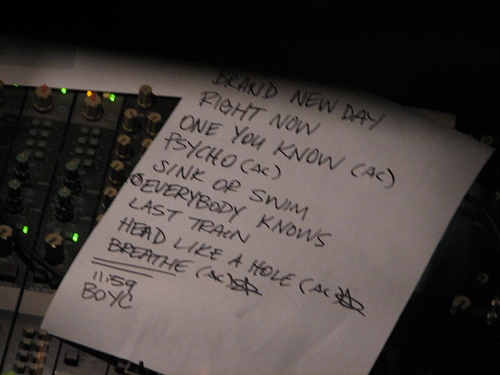 BRAND NEW DAY
RIGHT NOW
ONE YOU KNOW (AC)
PSYCHO (AC)
SINK OR SWIM
EVERYBODY KNOWS
LAST TRAIN
HEAD LIKE A HOLE (AC)
BREATHE (AC)
11:59
BOYC